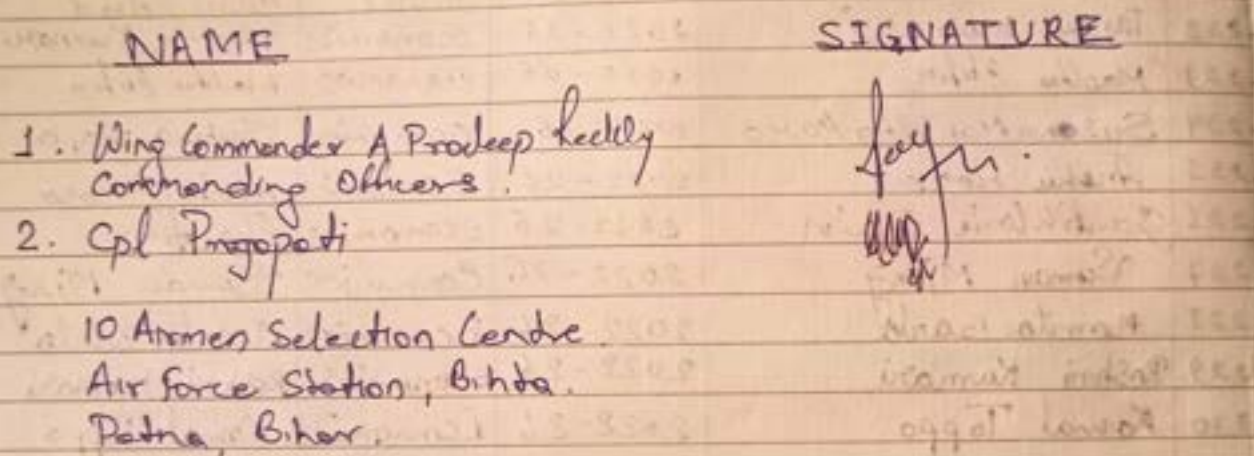 NAME SIGNATURE
1. Wing Commander A Pradeep Reddy
Commanding Officers.
2. Cpl Pragapati
10 Airmen Selection Centre.
Air force Station, Bihta.
Patna, Bihar.